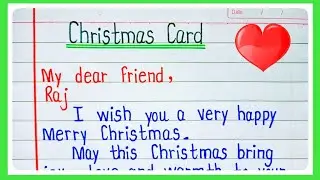 Christmas Card
Date / /
My dear friend,
Raj
I wish you a very happy
Merry Christmas.
May this Christmas bring
love and warmth to your